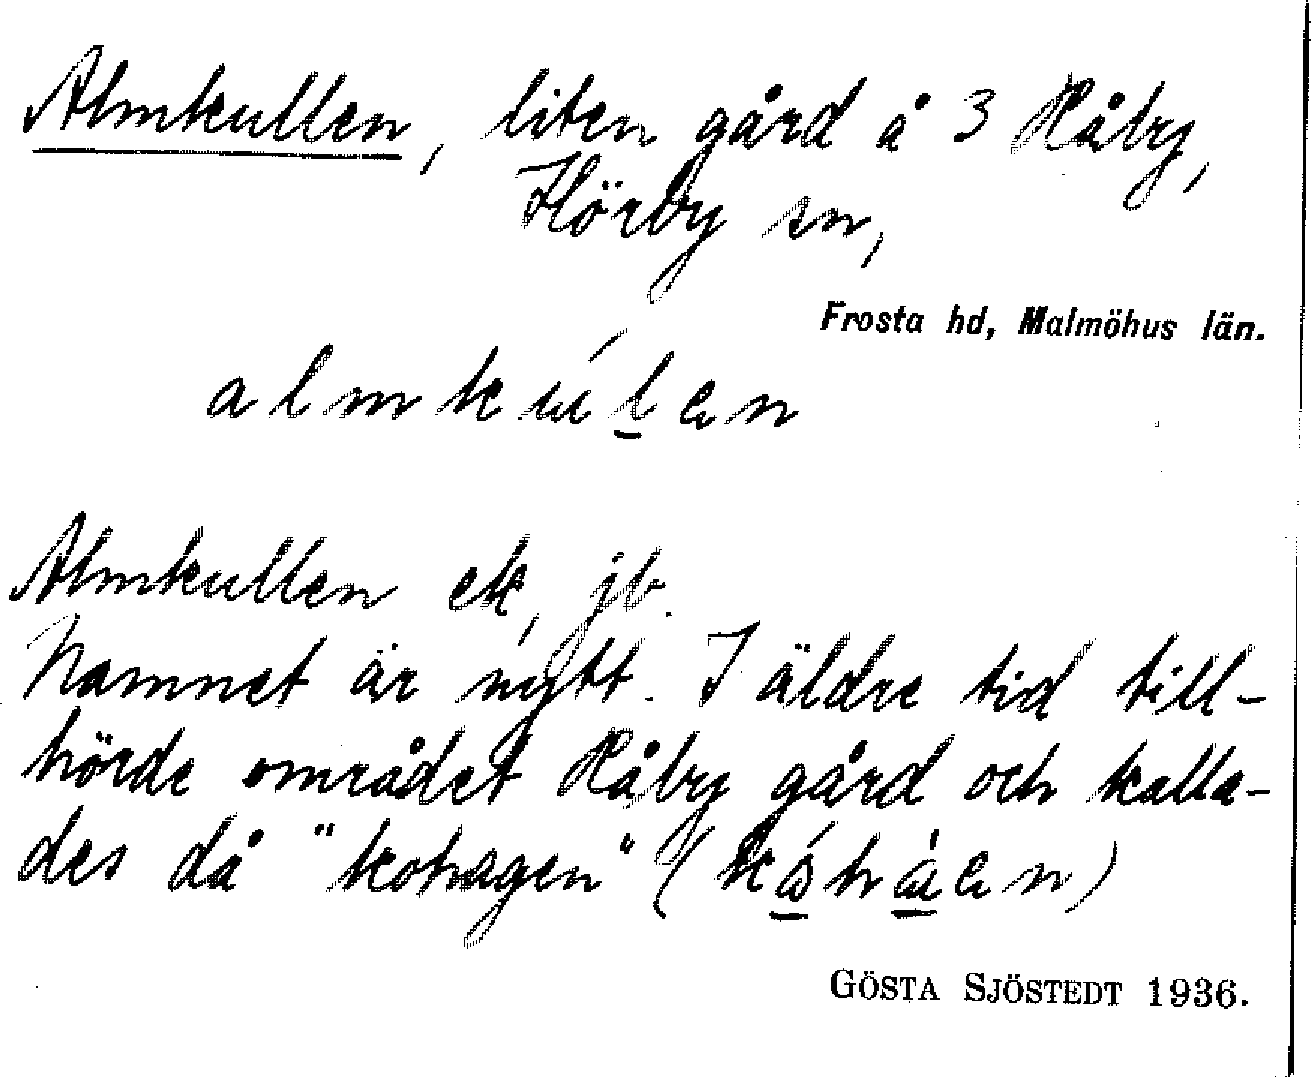 Almkullen, liten gård å 3 Råby,
Hörby sn,
Frosta hd, Malmöhus län.
Almkullen ek, jb.
Namnet är nytt. I äldre tid till-
hörde området Råby gård och kalla-
des då "kohagen"
GÖSTA SJÖSTEDT 1936.